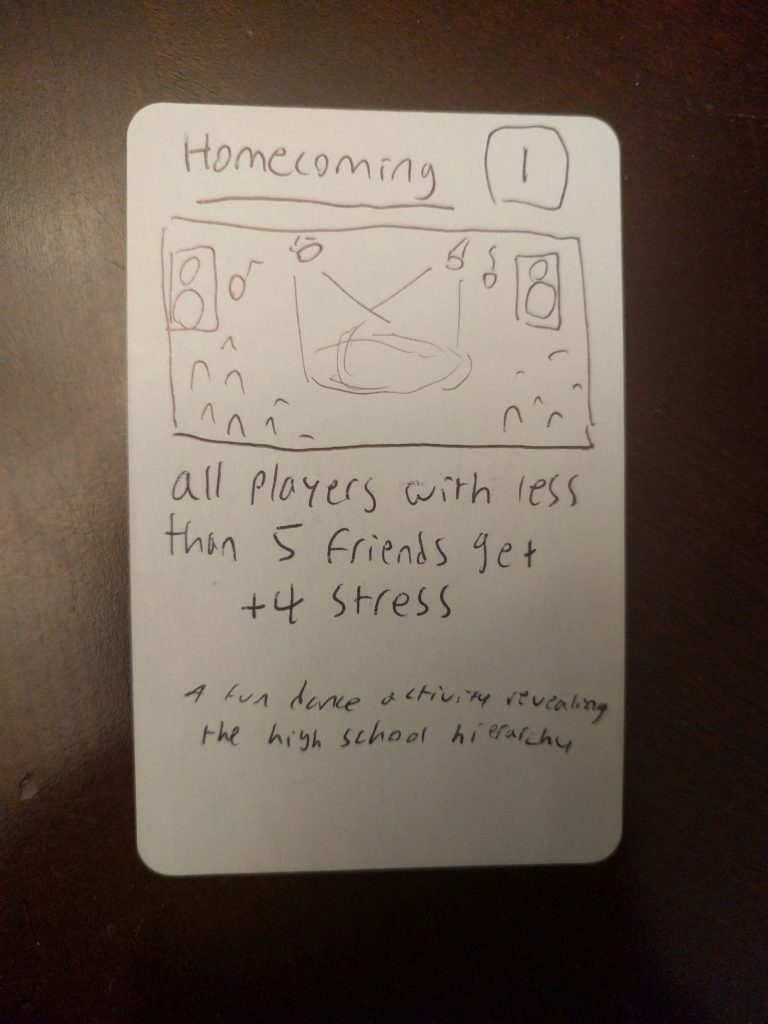 Homecoming 1
all players with less
than 5 friends get
+4 stress
A fun dance activity revealing
the high school hierarchy